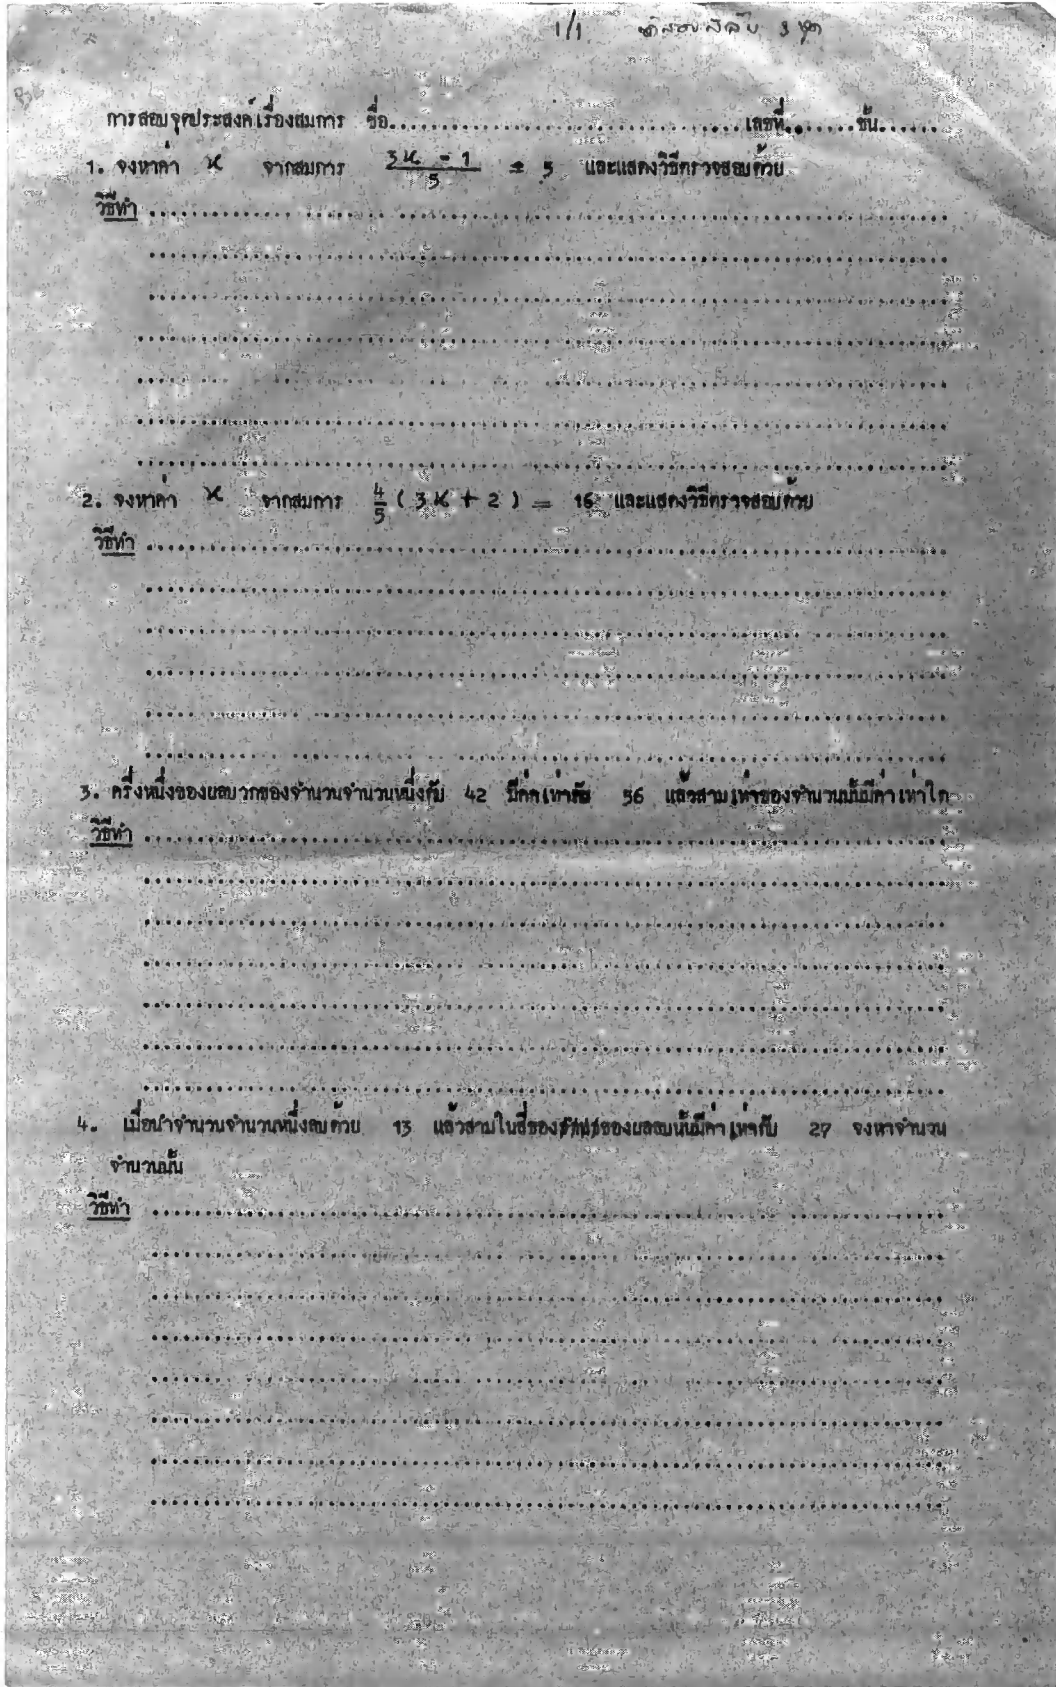 1/1 ข้อสอบสลับ 3 ชุด
การสอบจุดประสงค์เรื่องสมการ ชื่อ.................................เลขที่.......ชั้น......
1. จงหาค่า x จากสมการ (3x - 1)/5 = 5 และแสดงวิธีตรวจสอบด้วย
วิธีทำ
2. จงหาค่า x จากสมการ 4/5 ( 3x + 2 ) = 16 และแสดงวิธีตรวจสอบด้วย
วิธีทำ
3. ครึ่งหนึ่งของผลบวกของจำนวนจำนวนหนึ่งกับ 42 มีค่าเท่ากับ 56 แล้วสามเท่าของจำนวนนั้นมีค่าเท่าใด
วิธีทำ
4. เมื่อนำจำนวนจำนวนหนึ่งลบด้วย 13 แล้วสามในสี่ของของผลลบนั้นมีค่าเท่ากับ 27 จงหาจำนวน
จำนวนนั้น
วิธีทำ